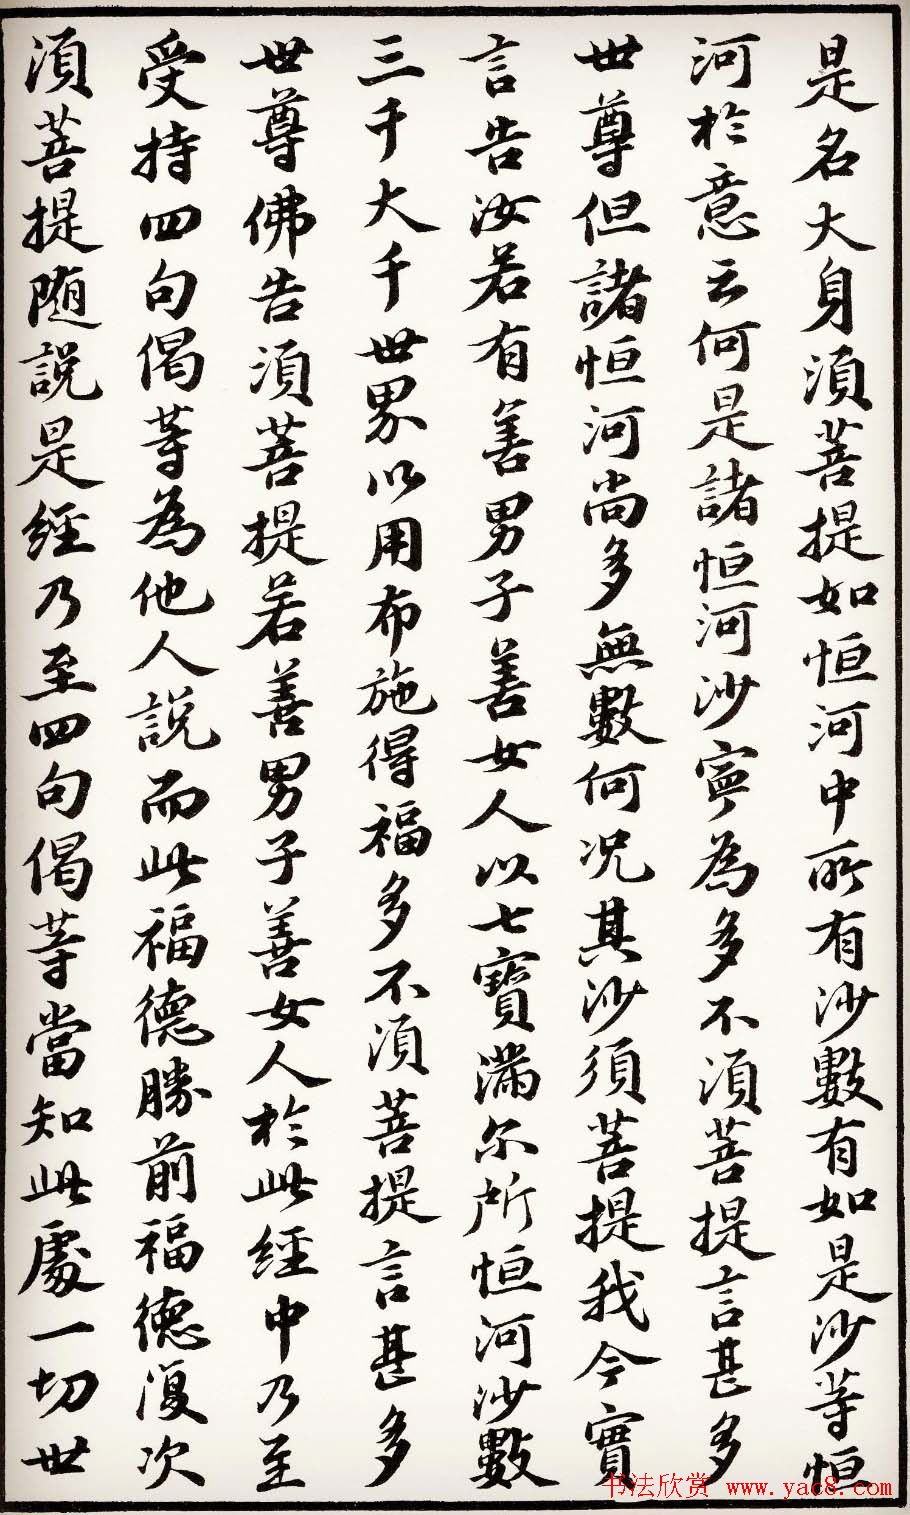 是名大身須菩提如恒河中所有沙數有如是沙等恒
河於意云何是諸恒河沙寧為多不須菩提言甚多
世尊但諸恒河尚多無數何况其沙須菩提我今實
言告汝若有善男子善女人以七寶滿尔所恒河沙數
三千大千世界以用布施得福多不須菩提言甚多
世尊佛告須菩提若善男子善女人於此經中乃至
受持四句偈等為他人說而此福德勝前福德復次
須菩提随說是經乃至四句偈等當知此處一切世
书法欣赏 www.yac8.com